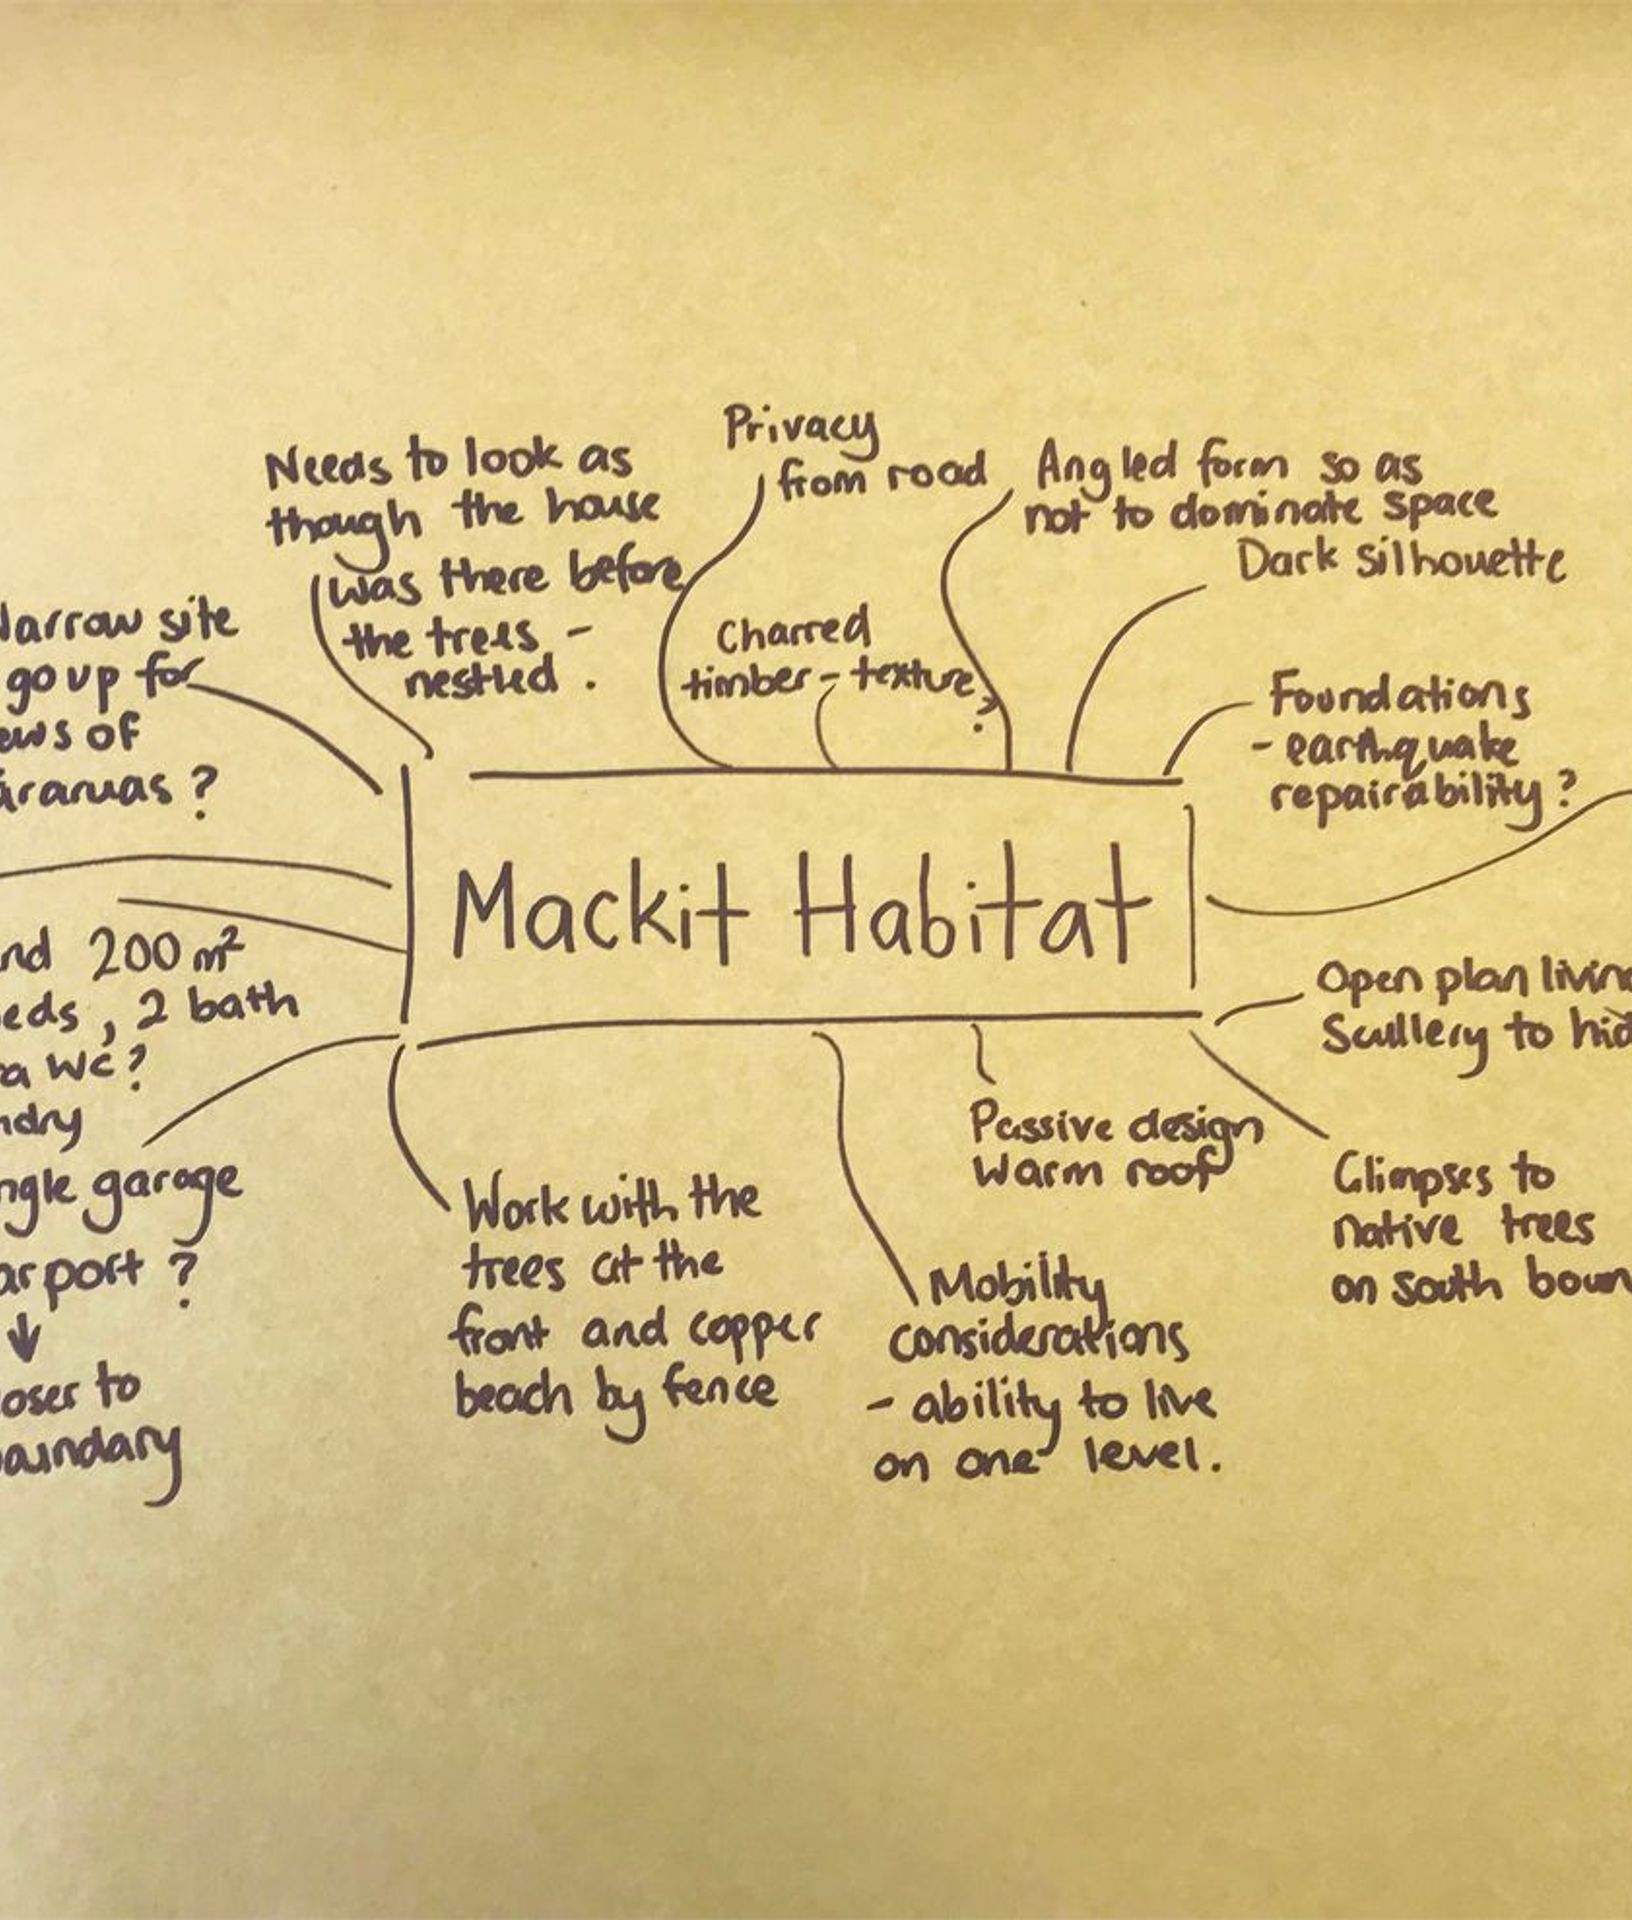 Needs to look as
though the house
was there before
the trees -
nestled.
Privacy
from road
Charred
timber - texture
?
Angled form so as
not to dominate space
Dark silhouette
Foundations
- earthquake
repairability?
Narrow site
go up for
ews of
?
Mackit Habitat
nd 200 m²
eds, 2 bath
a WC?
ndry
ngle garage
arport?
↓
oser to
oundary
Work with the
trees at the
front and copper
beach by fence
Mobility
considerations
- ability to live
on one level.
Passive design
Warm roof
Open plan livin
Scullery to hid
Glimpses to
native trees
on south boun